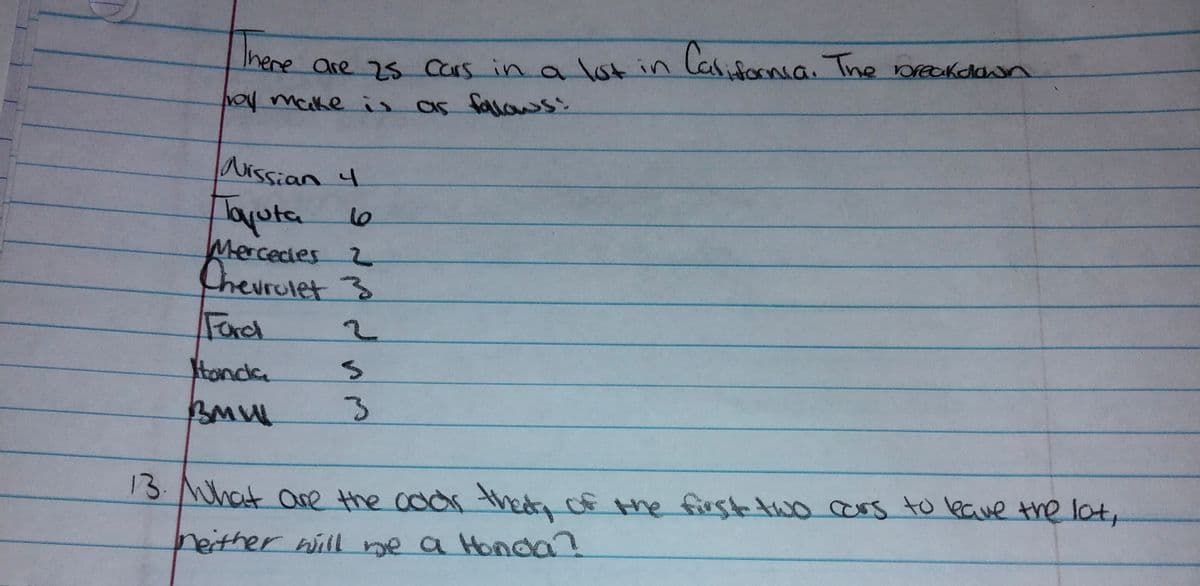 There are 25 cars in a lot in California. The breakdown
by make is as follows:
Nissian 4
Toyota 6
Mercedes 2
Chevrolet 3
Ford 2
Honda 5
BMW 3
13. What are the odds that, of the first two cars to leave the lot,
neither will be a Honda?